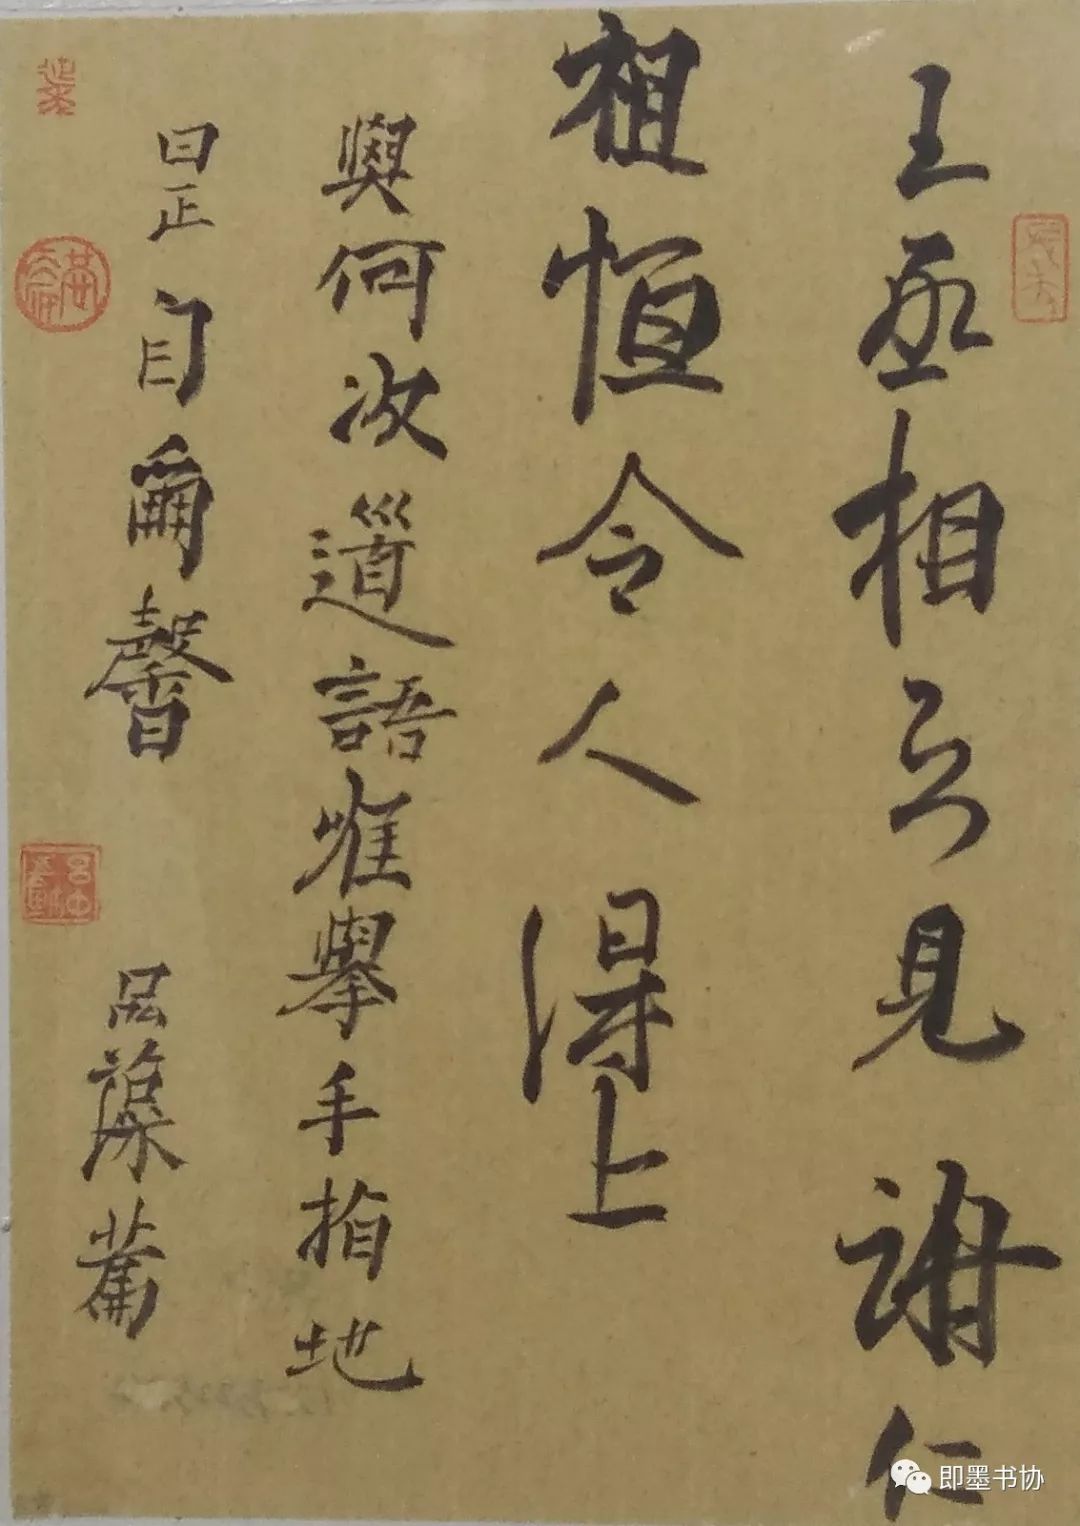 王丞相云見謝仁
祖恒令人得上
與何次道語唯舉手指地
曰正自爾馨
品藻篇
即墨书协